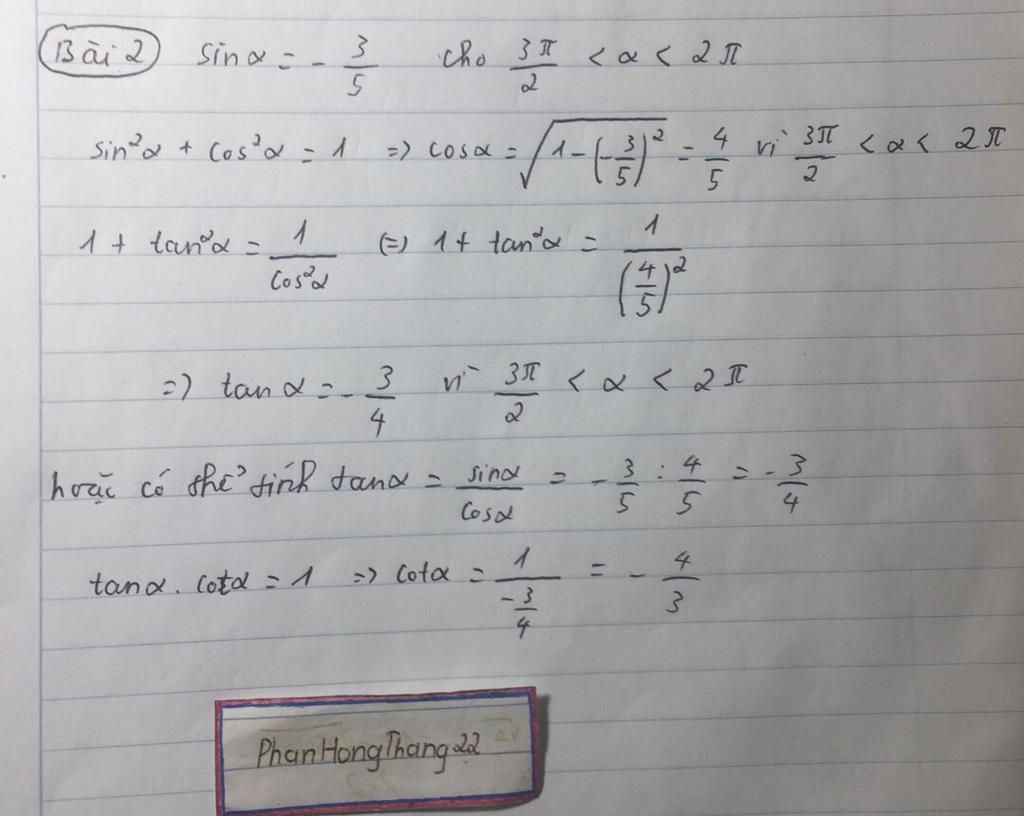 Bài 2 sinα = - 3/5 cho 3π/2 < α < 2π
sin²α + cos²α = 1 => cosα = √(1-(-3/5)²) = 4/5 vì 3π/2 < α < 2π
1 + tan²α = 1/cos²α (=) 1 + tan²α = 1/(4/5)²
=) tanα = - 3/4 vì 3π/2 < α < 2π
hoặc có thể tính tanα = sinα/cosα = - 3/5 : 4/5 = - 3/4
tanα . cotα = 1 => cotα = 1/(-3/4) = - 4/3
PhanHongThang22